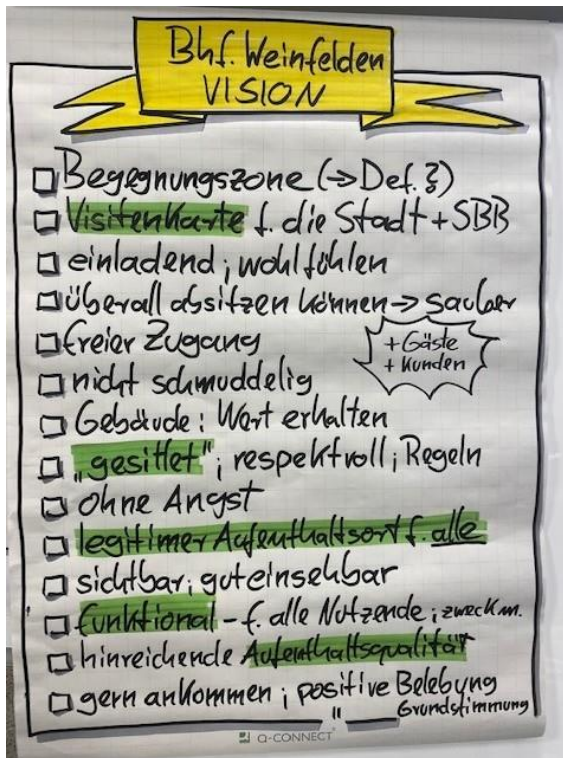 Bhf. Weinfelden
VISION
Begegnungszone (→ Def. ?)
Visitenkarte f. die Stadt + SBB
einladend ; wohlfühlen
überall absitzen können → sauber
freier Zugang
+ Gäste
+ Kunden
nicht schmuddelig
Gebäude : Wert erhalten
„gesittet" ; respektvoll ; Regeln
ohne Angst
legitimer Aufenthaltsort f. alle
sichtbar ; gut einsehbar
funktional – f. alle Nutzende ; zweckm.
hinreichende Aufenthaltsqualität
gern ankommen ; positive Belebung
" — Grundstimmung
Q-CONNECT